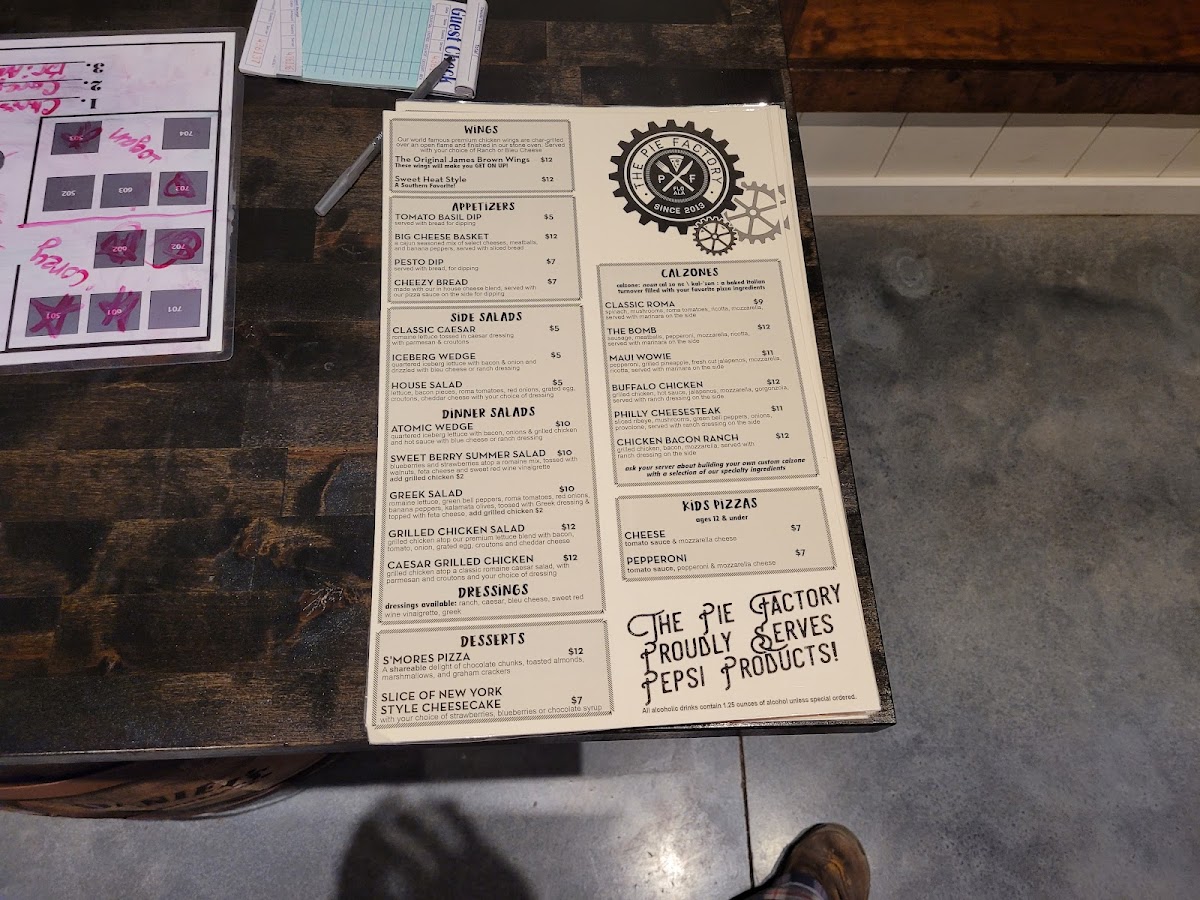 Guest Check
1.
2.
3.
704
703
603
502
702
602
701
601
501
Corey
WINGS
Our world famous premium chicken wings are char-grilled
over an open flame and finished in our stone oven. Served
with your choice of Ranch or Bleu Cheese
The Original James Brown Wings $12
These wings will make you GET ON UP!
Sweet Heat Style $12
A Southern Favorite!
APPETIZERS
TOMATO BASIL DIP $5
served with bread for dipping
BIG CHEESE BASKET $12
a cajun seasoned mix of select cheeses, meatballs,
and banana peppers, served with sliced bread
PESTO DIP $7
served with bread, for dipping
CHEEZY BREAD $7
made with our in house cheese blend, served with
our pizza sauce on the side for dipping
SIDE SALADS
CLASSIC CAESAR $5
romaine lettuce tossed in caesar dressing
with parmesan & croutons
ICEBERG WEDGE $5
quartered iceberg lettuce with bacon & onion and
drizzled with bleu cheese or ranch dressing
HOUSE SALAD $5
lettuce, bacon pieces, roma tomatoes, red onions, grated egg,
croutons, cheddar cheese with your choice of dressing
DINNER SALADS
ATOMIC WEDGE $10
quartered iceberg lettuce with bacon, onions & grilled chicken
and hot sauce with blue cheese or ranch dressing
SWEET BERRY SUMMER SALAD $10
blueberries and strawberries atop a romaine mix, tossed with
walnuts, feta cheese and sweet red wine vinaigrette
add grilled chicken $2
GREEK SALAD $10
romaine lettuce, green bell peppers, roma tomatoes, red onions,
banana peppers, kalamata olives, tossed with Greek dressing &
topped with feta cheese, add grilled chicken $2
GRILLED CHICKEN SALAD $12
grilled chicken atop our premium lettuce blend with bacon,
tomato, onion, grated egg, croutons and cheddar cheese
CAESAR GRILLED CHICKEN $12
grilled chicken atop a classic romaine caesar salad, with
parmesan and croutons and your choice of dressing
DRESSINGS
dressings available: ranch, caesar, bleu cheese, sweet red
wine vinaigrette, greek
DESSERTS
S'MORES PIZZA $12
A shareable delight of chocolate chunks, toasted almonds,
marshmallows, and graham crackers
SLICE OF NEW YORK
STYLE CHEESECAKE $7
with your choice of strawberries, blueberries or chocolate syrup
THE PIE FACTORY
P F
FLO
ALA
SINCE 2013
CALZONES
calzone: noun cal zo ne \ kal-'zon : a baked Italian
turnover filled with your favorite pizza ingredients
CLASSIC ROMA $9
spinach, mushrooms, roma tomatoes, ricotta, mozzarella,
served with marinara on the side
THE BOMB $12
sausage, meatballs, pepperoni, mozzarella, ricotta,
served with marinara on the side
MAUI WOWIE $11
pepperoni, grilled pineapple, fresh cut jalapenos, mozzarella,
ricotta, served with marinara on the side
BUFFALO CHICKEN $12
grilled chicken, hot sauce, jalapenos, mozzarella, gorgonzola,
served with ranch dressing on the side
PHILLY CHEESESTEAK $11
sliced ribeye, mushrooms, green bell peppers, onions,
provolone, served with ranch dressing on the side
CHICKEN BACON RANCH $12
grilled chicken, bacon, mozzarella, served with
ranch dressing on the side
ask your server about building your own custom calzone
with a selection of our specialty ingredients
KIDS PIZZAS
ages 12 & under
CHEESE $7
tomato sauce & mozzarella cheese
PEPPERONI $7
tomato sauce, pepperoni & mozzarella cheese
THE PIE FACTORY
PROUDLY SERVES
PEPSI PRODUCTS!
All alcoholic drinks contain 1.25 ounces of alcohol unless special ordered.